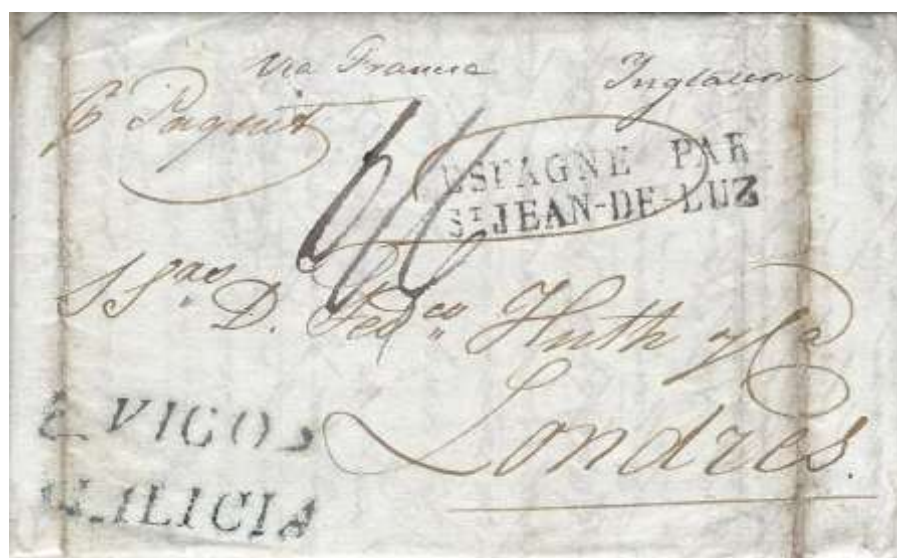 Via Francia Inglaterra
P Paquet
ESPAGNE PAR
ST JEAN-DE-LUZ
D. Fedco Huth y Ca
Londres.
VIGO